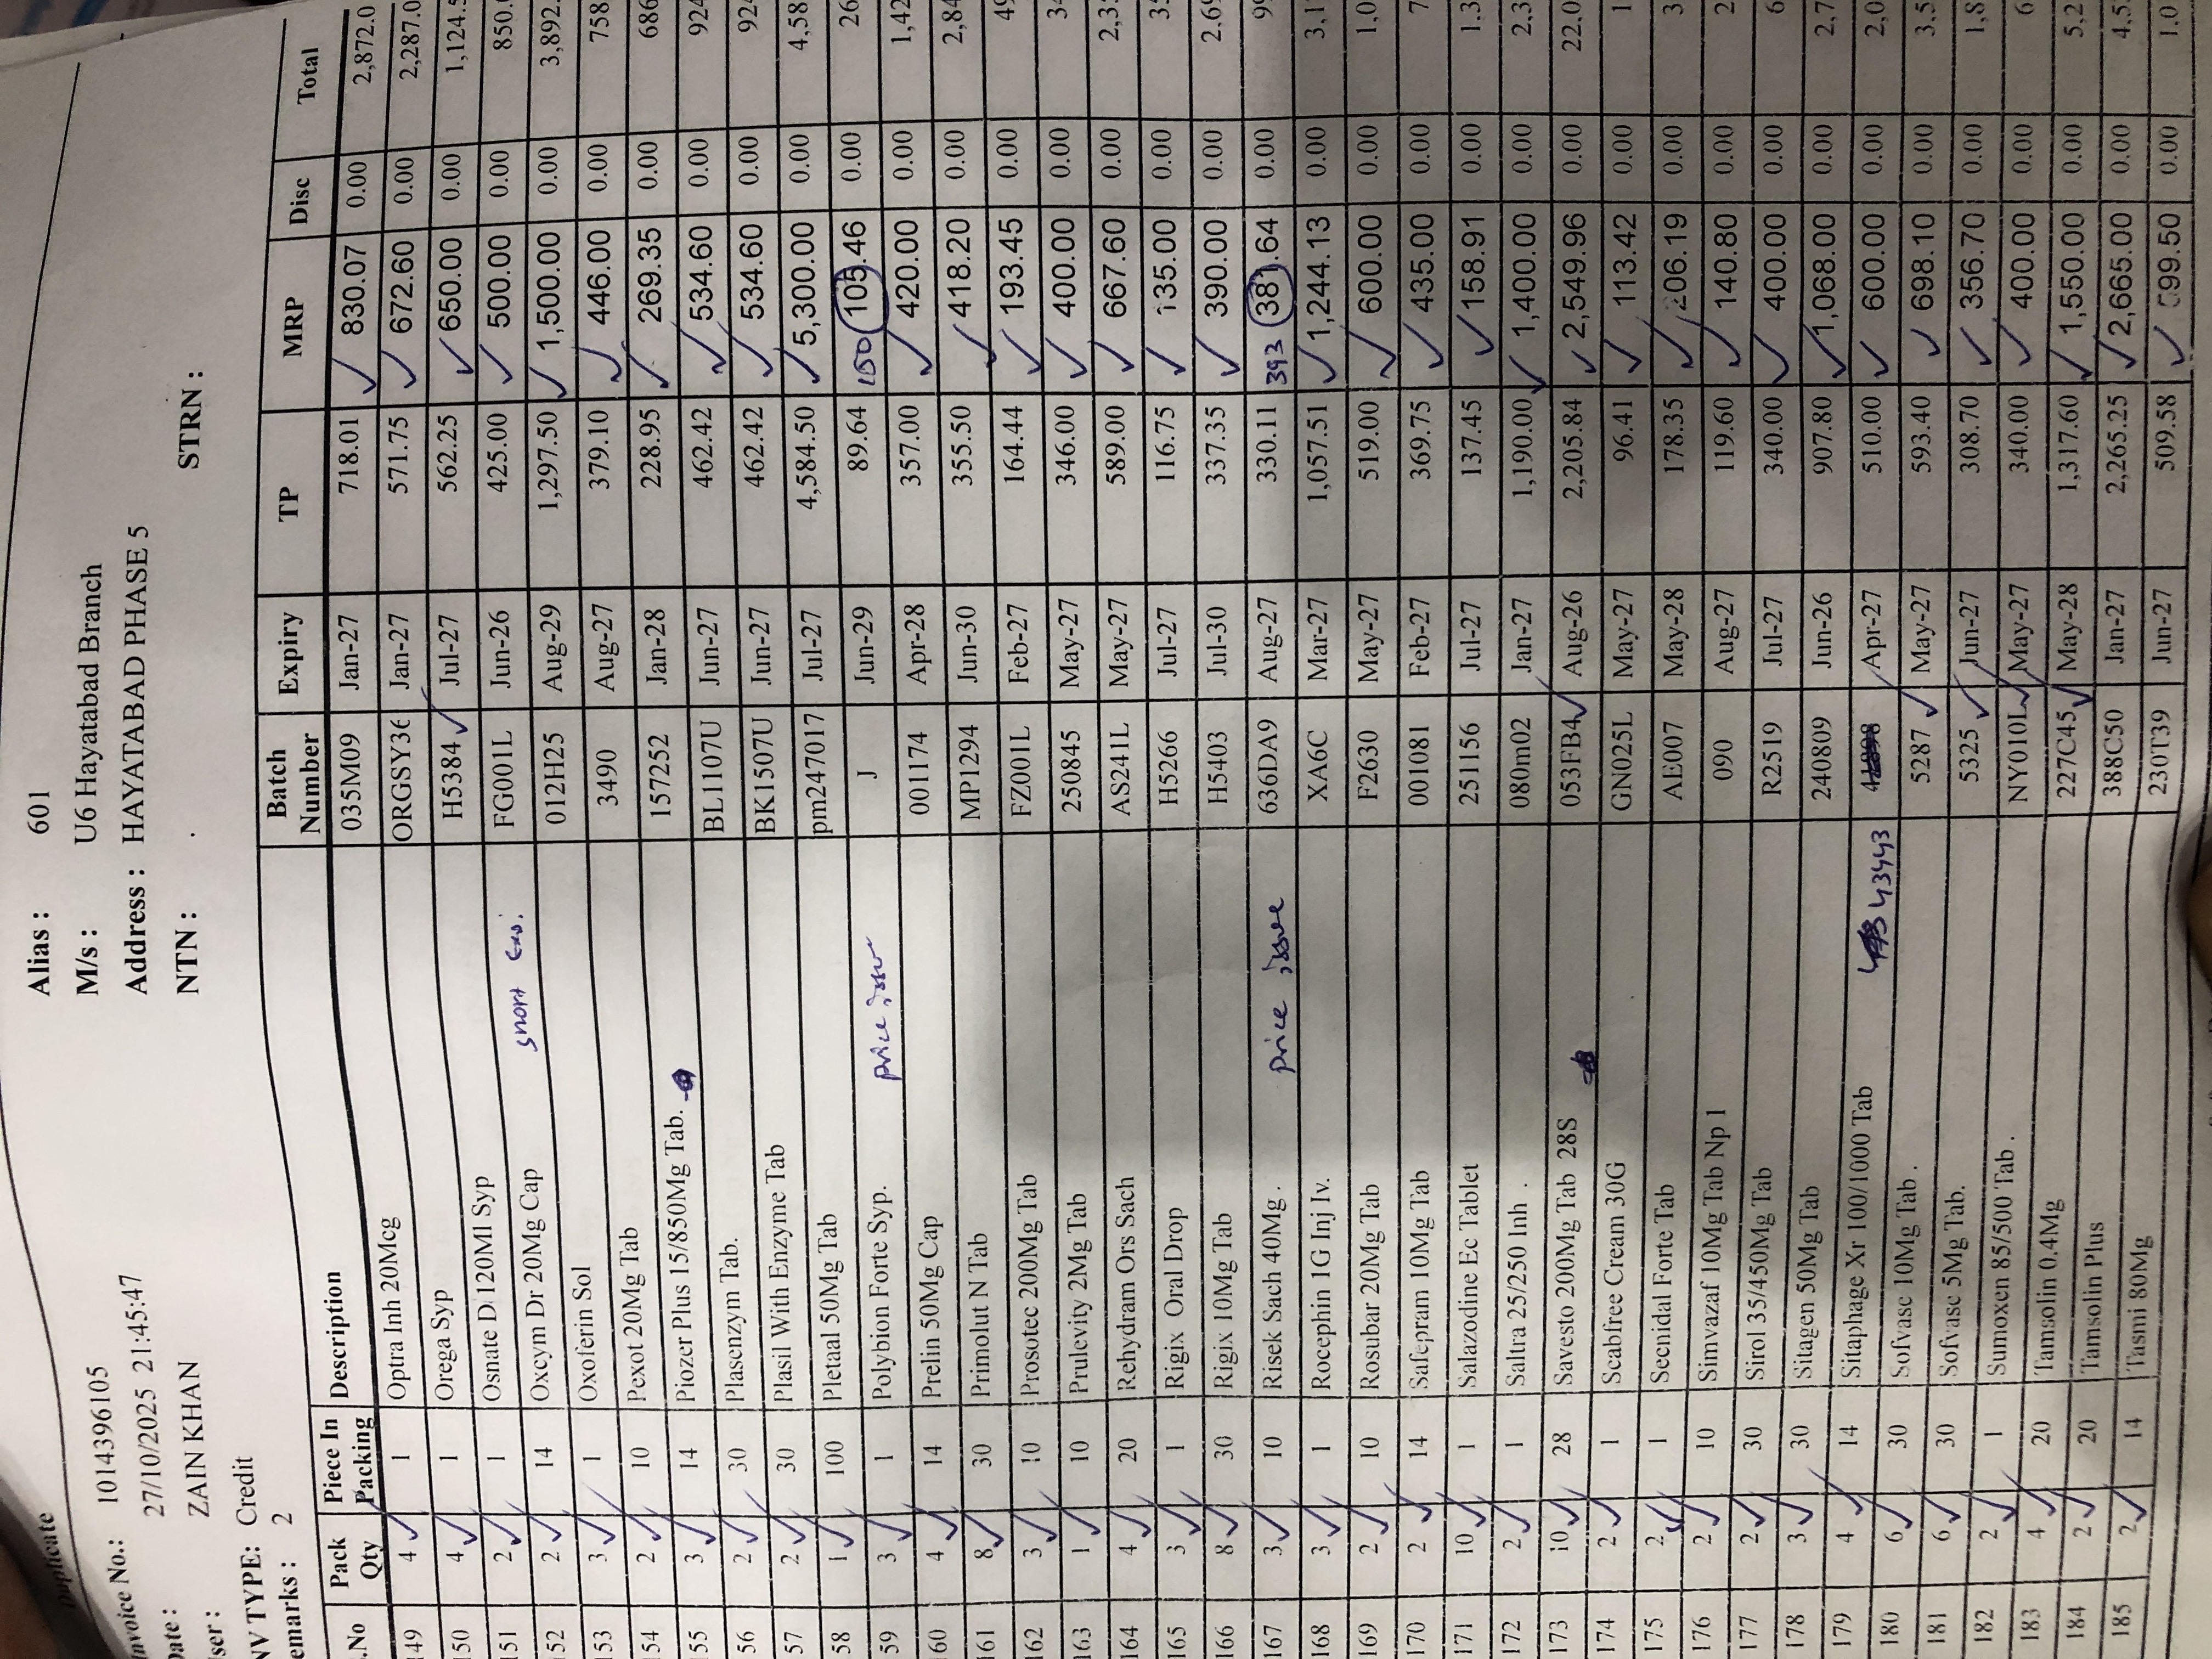 Duplicate
Invoice No.: 1014396105 Alias : 601
Date : 27/10/2025 21:45:47 M/s : U6 Hayatabad Branch
ser : ZAIN KHAN Address : HAYATABAD PHASE 5
NV TYPE: Credit NTN : . STRN :
emarks : 2
.No Pack Qty Piece In Packing Description Batch Number Expiry TP MRP Disc Total
149 4 1 Optra Inh 20Mcg 035M09 Jan-27 718.01 830.07 0.00 2,872.0
150 4 1 Orega Syp ORGSY36 Jan-27 571.75 672.60 0.00 2,287.0
151 2 1 Osnate D 120Ml Syp H5384 Jul-27 562.25 650.00 0.00 1,124.5
152 2 14 Oxcym Dr 20Mg Cap short exp. FG001L Jun-26 425.00 500.00 0.00 850.0
153 3 1 Oxoferin Sol 012H25 Aug-29 1,297.50 1,500.00 0.00 3,892.
154 2 10 Pexot 20Mg Tab 3490 Aug-27 379.10 446.00 0.00 758
155 3 14 Piozer Plus 15/850Mg Tab. 157252 Jan-28 228.95 269.35 0.00 686
56 2 30 Plasenzym Tab. BL1107U Jun-27 462.42 534.60 0.00 924
57 2 30 Plasil With Enzyme Tab BK1507U Jun-27 462.42 534.60 0.00 924
58 1 100 Pletaal 50Mg Tab pm247017 Jul-27 4,584.50 5,300.00 0.00 4,58
59 3 1 Polybion Forte Syp. price issue J Jun-29 89.64 150 105.46 0.00 26
60 4 14 Prelin 50Mg Cap 001174 Apr-28 357.00 420.00 0.00 1,42
161 8 30 Primolut N Tab MP1294 Jun-30 355.50 418.20 0.00 2,84
162 3 10 Prosotec 200Mg Tab FZ001L Feb-27 164.44 193.45 0.00 49
163 1 10 Prulevity 2Mg Tab 250845 May-27 346.00 400.00 0.00 34
164 4 20 Rehydram Ors Sach AS241L May-27 589.00 667.60 0.00 2,3
165 3 1 Rigix Oral Drop H5266 Jul-27 116.75 135.00 0.00 35
166 8 30 Rigix 10Mg Tab H5403 Jul-30 337.35 390.00 0.00 2,69
167 3 10 Risek Sach 40Mg . price issue 636DA9 Aug-27 330.11 393 381.64 0.00 99
168 3 1 Rocephin 1G Inj Iv. XA6C Mar-27 1,057.51 1,244.13 0.00 3,1
169 2 10 Rosubar 20Mg Tab F2630 May-27 519.00 600.00 0.00 1,0
170 2 14 Safepram 10Mg Tab 001081 Feb-27 369.75 435.00 0.00 7
171 10 1 Salazodine Ec Tablet 251156 Jul-27 137.45 158.91 0.00 1,3
172 2 1 Saltra 25/250 Inh . 080m02 Jan-27 1,190.00 1,400.00 0.00 2,3
173 10 28 Savesto 200Mg Tab 28S 053FB4 Aug-26 2,205.84 2,549.96 0.00 22,0
174 2 1 Scabfree Cream 30G GN025L May-27 96.41 113.42 0.00 1
175 2 1 Secnidal Forte Tab AE007 May-28 178.35 206.19 0.00 3
176 2 10 Simvazaf 10Mg Tab Np1 090 Aug-27 119.60 140.80 0.00 2
177 2 30 Sirol 35/450Mg Tab R2519 Jul-27 340.00 400.00 0.00 6
178 3 30 Sitagen 50Mg Tab 240809 Jun-26 907.80 1,068.00 0.00 2,7
179 4 14 Sitaphage Xr 100/1000 Tab 43443 Apr-27 510.00 600.00 0.00 2,0
180 6 30 Sofvasc 10Mg Tab . 5287 May-27 593.40 698.10 0.00 3,5
181 6 30 Sofvasc 5Mg Tab. 5325 Jun-27 308.70 356.70 0.00 1,8
182 2 1 Sumoxen 85/500 Tab . NY010L May-27 340.00 400.00 0.00 6
183 4 20 Tamsolin 0.4Mg 227C45 May-28 1,317.60 1,550.00 0.00 5,2
184 2 20 Tamsolin Plus 388C50 Jan-27 2,265.25 2,665.00 0.00 4,5
185 2 14 Tasmi 80Mg 230T39 Jun-27 509.58 599.50 0.00 1,0